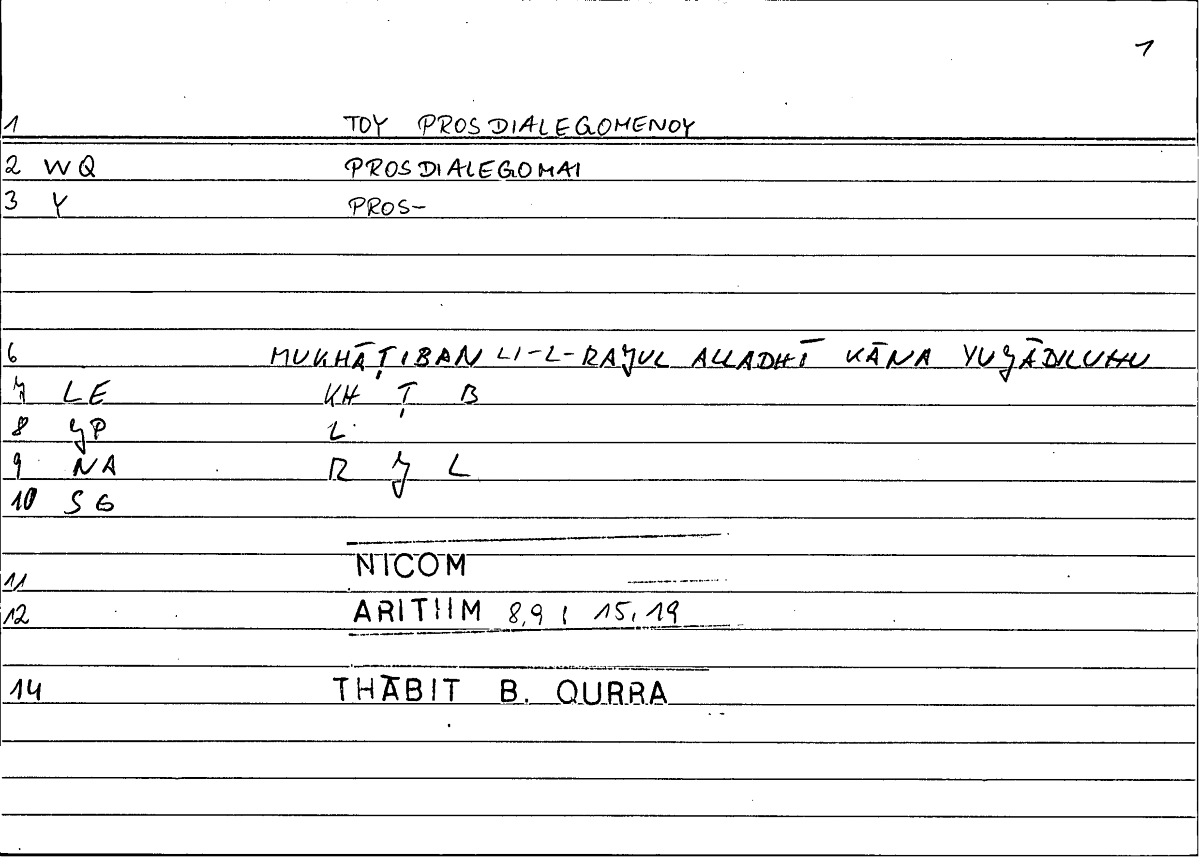 1
1 TOY PROSDIALEGOMENOY
2 WQ PROSDIALEGOMAI
3 Y PROS-
6 MUKHĀṬIBAN LI-L-RAJUL ALLADHĪ KĀNA YUJĀDILUHU
7 LE KH Ṭ B
8 JP L
9 NA R J L
10 SG
11 NICOM
12 ARITHM 8,9 ; 15,19
14 THĀBIT B. QURRA